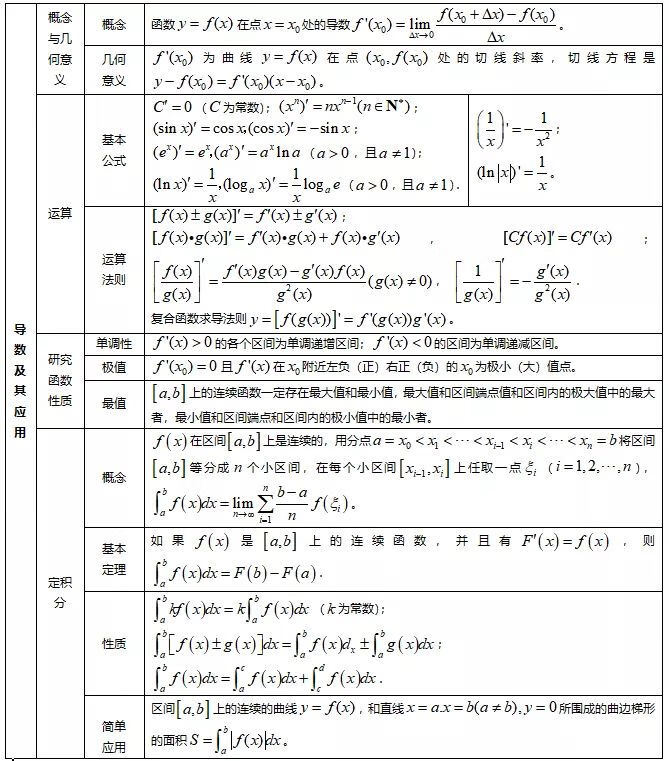 导数及其应用
概念与几何意义
概念
函数 y = f(x) 在点 x = x₀ 处的导数 f'(x₀) = lim_{Δx→0} (f(x₀ + Δx) − f(x₀))/Δx 。
几何意义
f'(x₀) 为曲线 y = f(x) 在点 (x₀, f(x₀)) 处的切线斜率，切线方程是
y − f(x₀) = f'(x₀)(x − x₀)。
运算
基本公式
C' = 0（C 为常数）；(xⁿ)' = nxⁿ⁻¹(n ∈ N*)；
(sin x)' = cos x,(cos x)' = −sin x；
(eˣ)' = eˣ,(aˣ)' = aˣ ln a（a > 0，且 a ≠ 1）；
(ln x)' = 1/x,(logₐ x)' = (1/x) logₐ e（a > 0，且 a ≠ 1）.
(1/x)' = −1/x²；
(ln|x|)' = 1/x。
运算法则
[f(x) ± g(x)]' = f'(x) ± g'(x)；
[f(x)•g(x)]' = f'(x)•g(x) + f(x)•g'(x) ， [Cf(x)]' = Cf'(x) ；
[f(x)/g(x)]' = (f'(x)g(x) − g'(x)f(x))/g²(x) (g(x) ≠ 0)，[1/g(x)]' = −g'(x)/g²(x) .
复合函数求导法则 y = [f(g(x))]' = f'(g(x))g'(x)。
研究函数性质
单调性
f'(x) > 0 的各个区间为单调递增区间；f'(x) < 0 的区间为单调递减区间。
极值
f'(x₀) = 0 且 f'(x) 在 x₀ 附近左负（正）右正（负）的 x₀ 为极小（大）值点。
最值
[a,b] 上的连续函数一定存在最大值和最小值，最大值和区间端点值和区间内的极大值中的最大
者，最小值和区间端点和区间内的极小值中的最小者。
定积分
概念
f(x) 在区间 [a,b] 上是连续的，用分点 a = x₀ < x₁ < ⋯ < xᵢ₋₁ < xᵢ < ⋯ < xₙ = b 将区间
[a,b] 等分成 n 个小区间，在每个小区间 [xᵢ₋₁, xᵢ] 上任取一点 ξᵢ（i = 1,2,⋯,n），
∫ₐᵇ f(x)dx = lim_{n→∞} Σ_{i=1}^{n} (b−a)/n f(ξᵢ)。
基本定理
如果 f(x) 是 [a,b] 上的连续函数，并且有 F'(x) = f(x) ，则
∫ₐᵇ f(x)dx = F(b) − F(a) .
性质
∫ₐᵇ kf(x)dx = k∫ₐᵇ f(x)dx（k 为常数）；
∫ₐᵇ [f(x) ± g(x)]dx = ∫ₐᵇ f(x)dₓ ± ∫ₐᵇ g(x)dx；
∫ₐᵇ f(x)dx = ∫ₐᶜ f(x)dx + ∫_c^d f(x)dx .
简单应用
区间 [a,b] 上的连续的曲线 y = f(x)，和直线 x = a.x = b(a ≠ b), y = 0 所围成的曲边梯形
的面积 S = ∫ₐᵇ |f(x)|dx。